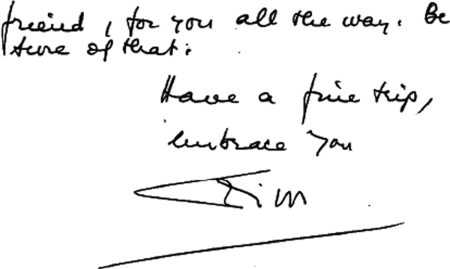 friend, for you all the way. Be
sure of that.
Have a fine trip,
embrace you